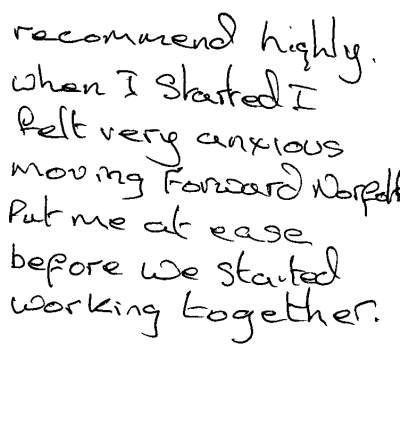 recommend highly.
when I started I
felt very anxious
moving Forward Norfolk
Put me at ease
before we started
working together.